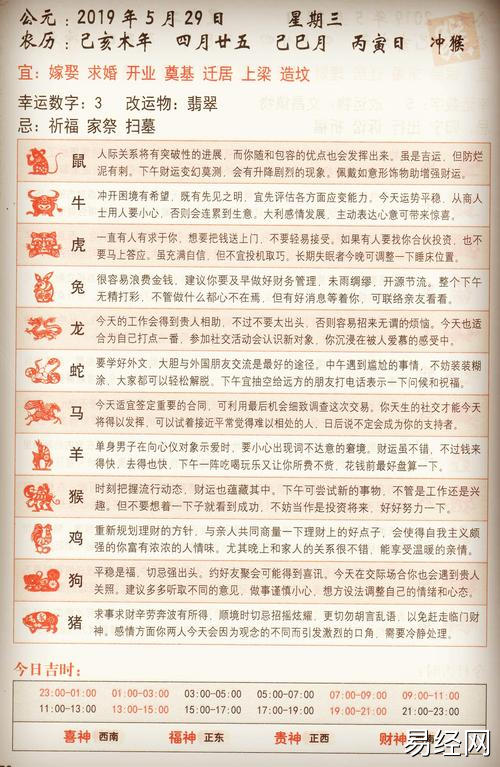 公元：2019年5月29日 星期三
农历：己亥木年 四月廿五 己巳月 丙寅日 冲猴
宜：嫁娶 求婚 开业 奠基 迁居 上梁 造坟
幸运数字：3 改运物：翡翠
忌：祈福 家祭 扫墓
鼠
人际关系将有突破性的进展，而你随和包容的优点也会发挥出来。虽是吉运，但防烂
泥有刺。下午财运变幻莫测，会有升降剧烈的现象。佩戴如意形饰物助增强财运。
牛
冲开困境有希望，既有先见之明，宜先评估各方面应变能力。今天运势平稳，从商人
士用人要小心，否则会连累到生意。大利感情发展，主动表达心意可带来惊喜。
虎
一直有人有求于你，想要把钱送上门，不要轻易接受。如果有人要找你合伙投资，也不
要马上答应。虽充满自信，但不宜投机取巧。长期失眠者今晚可调整一下睡床位置。
兔
很容易浪费金钱，建议你要及早做好财务管理，未雨绸缪，开源节流。整个下午
无精打彩，不管做什么都心不在焉，但有好消息等着你，可联络亲友看看。
龙
今天的工作会得到贵人相助，不过不要太出头，否则容易招来无谓的烦恼。今天也适
合为自己打点一番，参加社交活动会认识新对象，你沉浸在被人爱慕的感受中。
蛇
要学好外文，大胆与外国朋友交流是最好的途径。中午遇到尴尬的事情，不妨装装糊
涂，大家都可以轻松解脱。下午宜抽空给远方的朋友打电话表示一下问候和祝福。
马
今天适宜签定重要的合同，可利用最后机会细致调查这次交易。你天生的社交才能今天
将得以发挥，可以试着接近平常觉得难以相处的人，日后说不定会成为你的支持者。
羊
单身男子在向心仪对象示爱时，要小心出现词不达意的窘境。财运虽不错，不过钱来
得快，去得也快，下午一阵吃喝玩乐又让你所费不赀，花钱前最好盘算一下。
猴
时刻把握流行动态，财运也蕴藏其中。下午可尝试新的事物，不管是工作还是兴
趣。但不要想着一下子就看到成功，不妨当作是投资将来，好好努力一下。
鸡
重新规划理财的方针，与亲人共同商量一下理财上的好点子，会使得自我主义颇
强的你富有浓浓的人情味。尤其晚上和家人的关系很不错，能享受温暖的亲情。
狗
平稳是福，切忌强出头。约好友聚会可能得到喜讯。今天在交际场合你也会遇到贵人
关照。建议多多听取不同的意见，做事谨慎小心，想方设法调整自己的情绪和心态。
猪
求事求财辛劳奔波有所得，顺境时切忌招摇炫耀，更切勿胡言乱语，以免赶走临门财
神。感情方面你两人今天会因为观念的不同而引发激烈的口角，需要冷静处理。
今日吉时：
23:00-01:00 01:00-03:00 03:00-05:00 05:00-07:00 07:00-09:00 09:00-11:00
11:00-13:00 13:00-15:00 15:00-17:00 17:00-19:00 19:00-21:00 21:00-23:00
喜神 西南 福神 正东 贵神 正西 财神
易经网